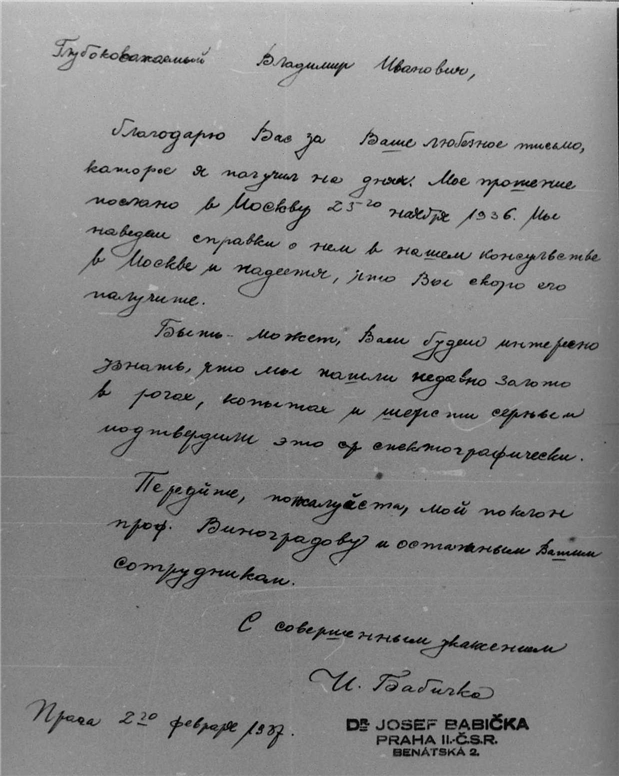 Глубоковажаемый Владимир Иванович,
благодарю Вас за Ваше любезное письмо,
каторое я получил на днях. Мое прошение
послано в Москву 25го ноября 1936. Мы
наведем справки о нем в нашем консульстве
в Москве и надеемся, что Вы скоро его
получите.
Быть-может, Вам будет интересно
узнать, что мы нашли недавно золото
в рогах, копытах и шерсти серны и
подтвердили это спектографически.
Передйте, пожалуйста, мой поклон
проф. Виноградову и остальным Вашим
сотрудникам.
С совершенным уважением
И. Бабичка
Прага 2го февраля 1937.
DR JOSEF BABIČKA
PRAHA II.-Č.S.R.
BENÁTSKÁ 2.